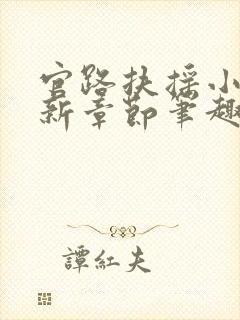 官路扶摇小
新章节笔趣
譚紅夫